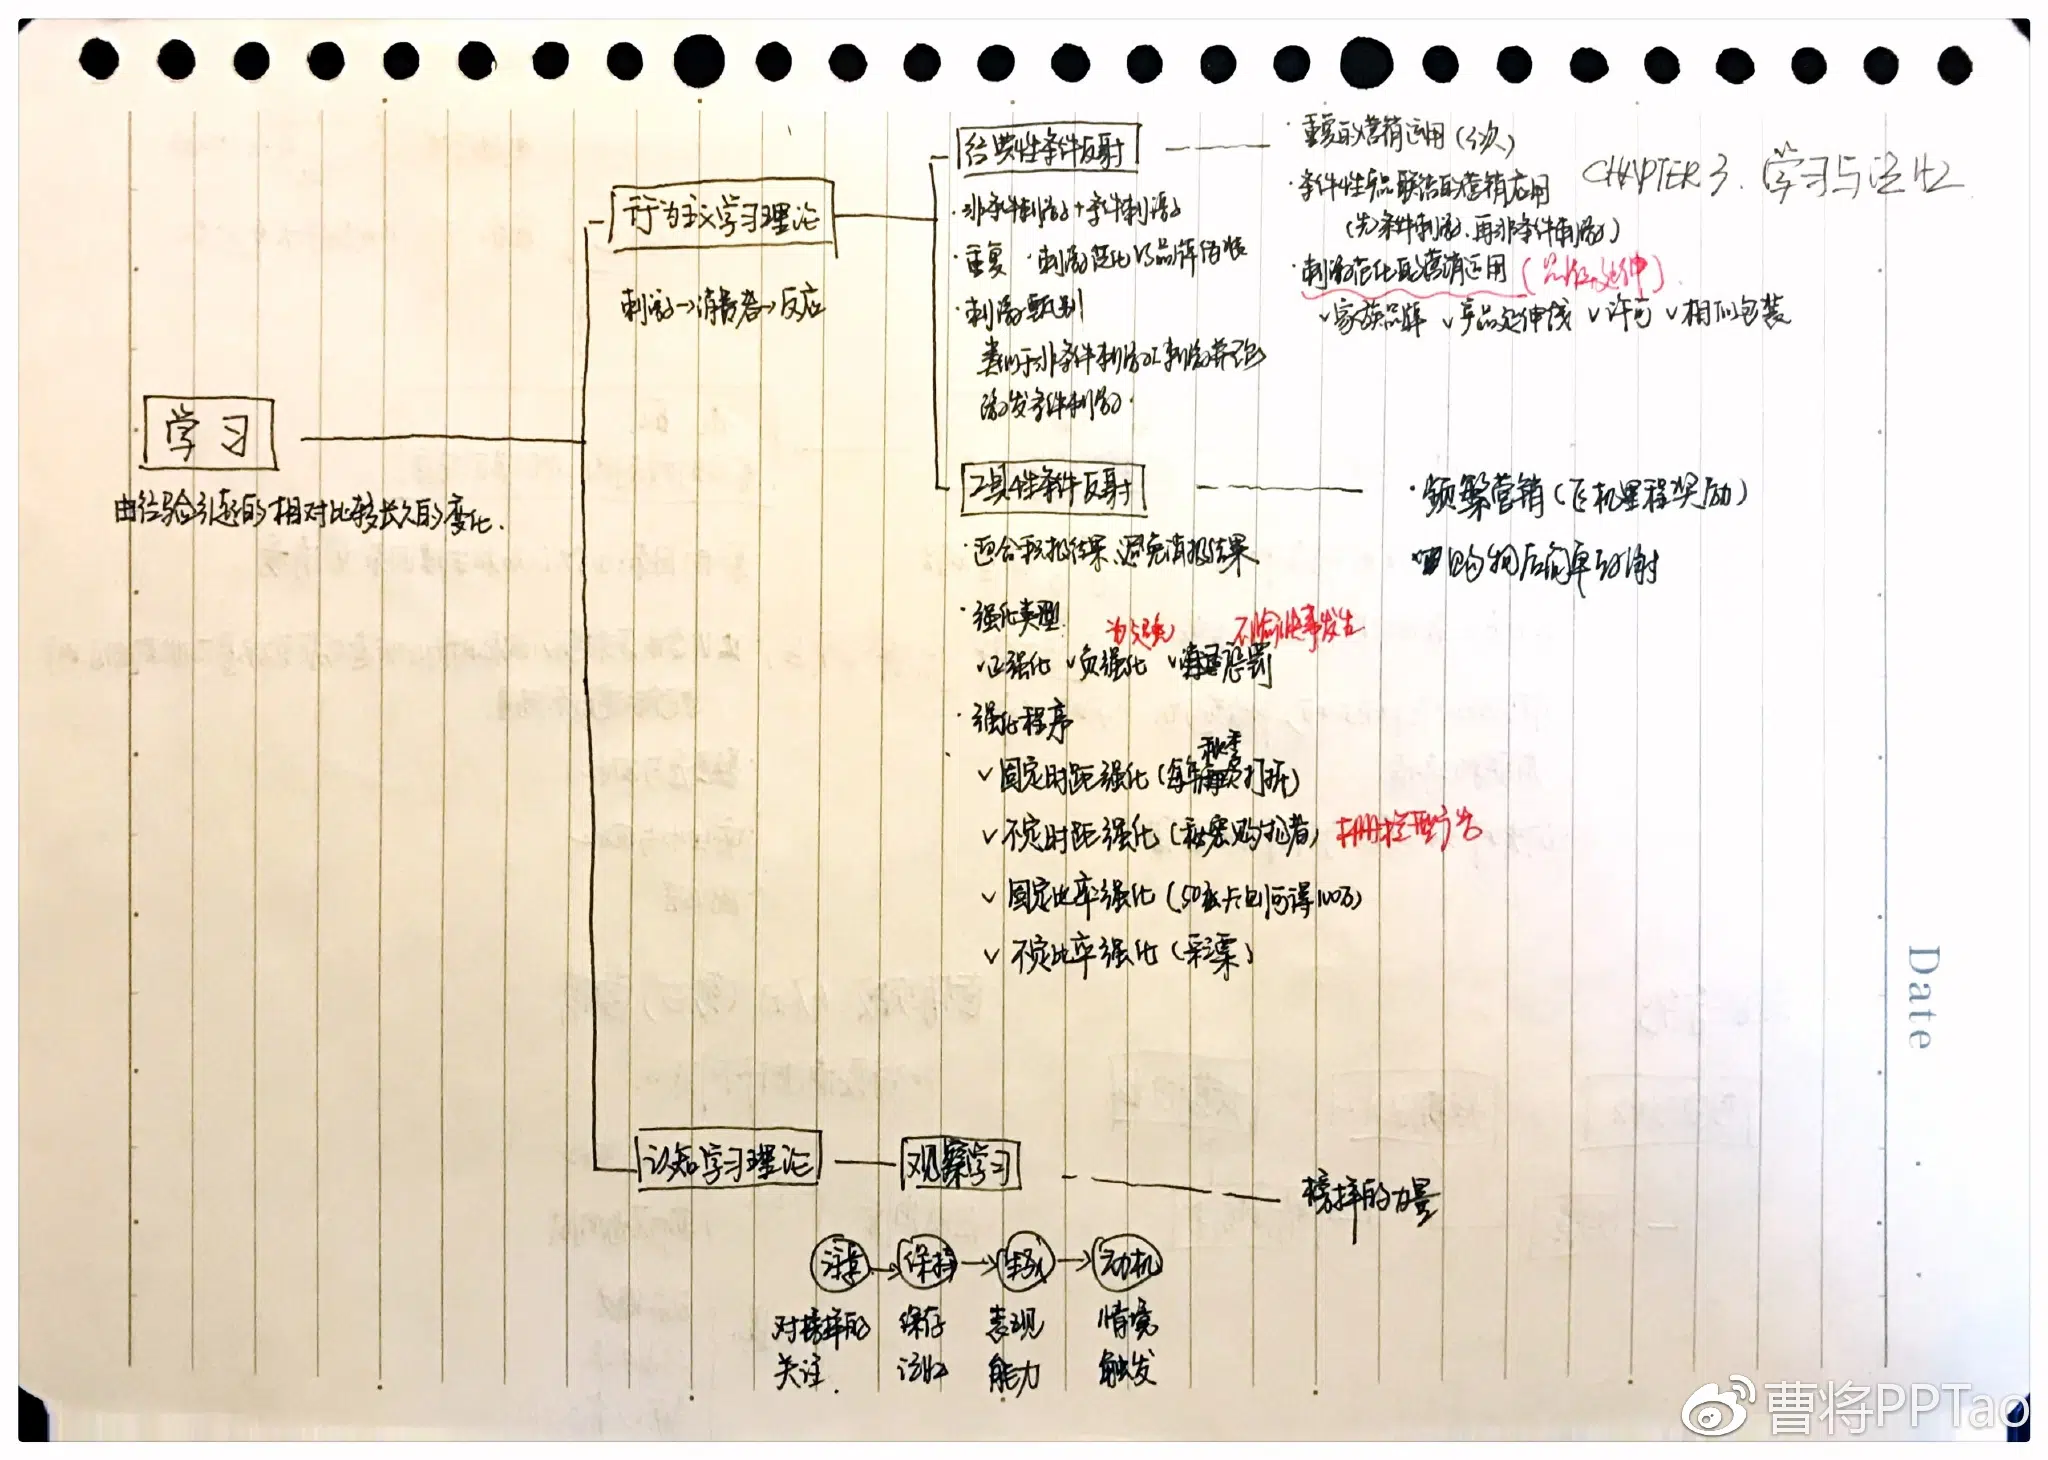 CHAPTER 3. 学习与记忆
学习
由经验引起的相对比较长久的变化.
行为主义学习理论
刺激→消费者→反应
经典性条件反射
·非条件刺激+条件刺激
·重复 ·刺激泛化与品牌伪装
·刺激甄别
类似于非条件刺激的刺激并没
激发条件刺激.
·重复的营销运用(3次)
·条件性产品联结的营销应用
(先条件刺激.再非条件刺激)
·刺激范化的营销运用(品牌延伸)
√家族品牌 √产品延伸线 √许可 √相似包装
工具性条件反射
·迎合积极结果、避免消极结果
·强化类型
为避免 不愉快事发生
√正强化 √负强化 √惩罚
·强化程序
秋季
√固定时距强化(每年打折)
√不定时距强化(秘密购物者)
√固定比率强化(50张卡即可得100万)
√不定比率强化(彩票)
·频繁营销(飞机里程奖励)
购物后简单致谢
认知学习理论
观察学习
榜样的力量
注意→保持→生成→动机
对榜样的关注.
保存记忆
表现能力
情境触发
Date
曹将PPTao